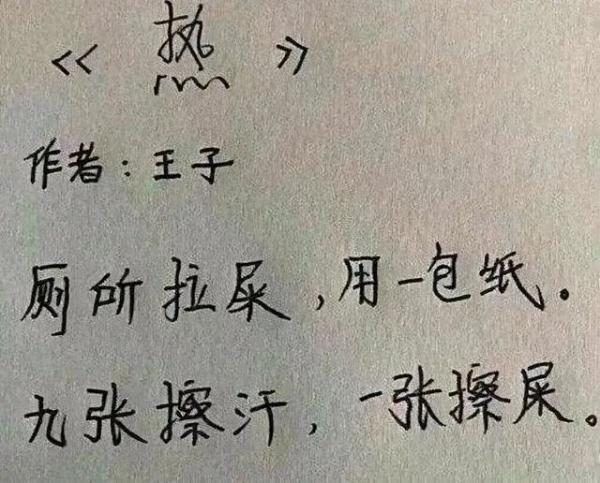 《热》
作者：王子
厕所拉屎，用一包纸。
九张擦汗，一张擦屎。